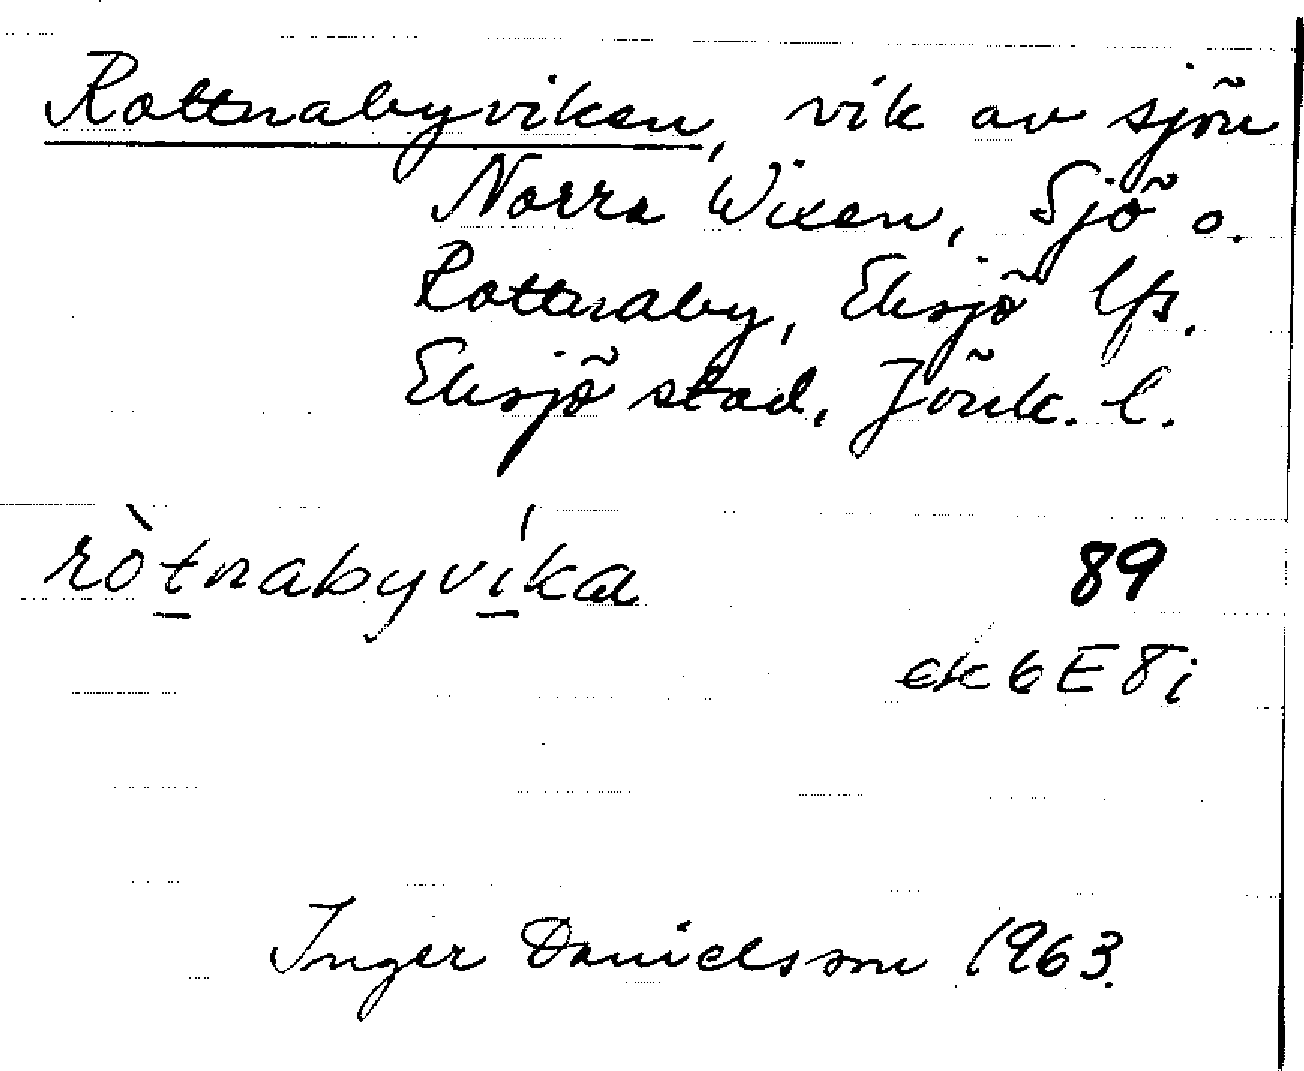 Rottnabyviken, vik av sjön
Norra Wixen, Sjö o.
Rottnaby, Eksjö lfs.
Eksjö stad, Jönk. l.
ròt̲nabyví̲ka
89
ek 6E8i
Inger Danielsson 1963.